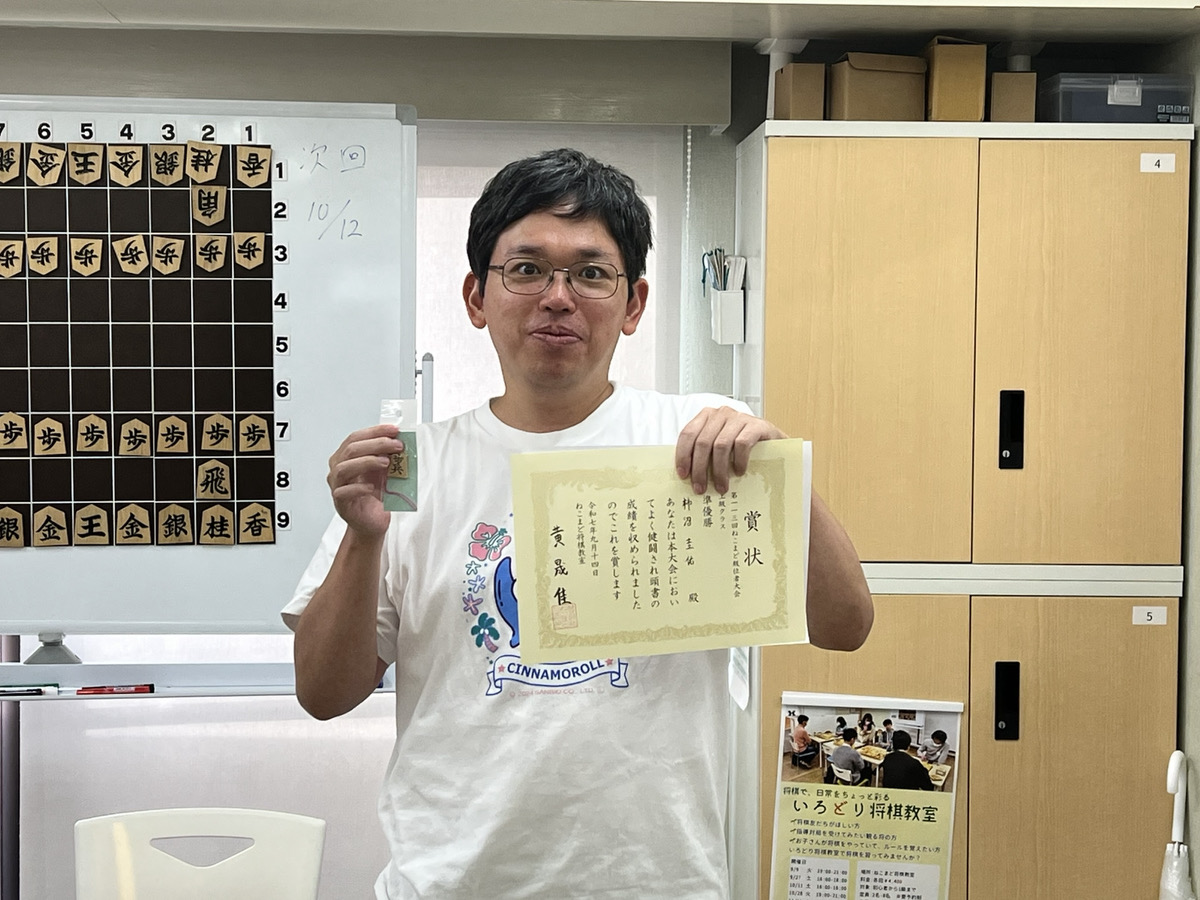 7 6 5 4 3 2 1
次回
10/12
1
2
3
4
5
6
7
8
9
銀 金 玉 金 銀 桂 香
角
歩 歩 歩 歩 歩 歩 歩
歩 歩 歩 歩 歩 歩 歩
飛
銀 金 王 金 銀 桂 香
賞状
第一一三回ねこまど級位者大会
上級クラス
準優勝
柿沼 圭佑 殿
あなたは本大会におい
てよく健闘され頭書の
成績を収められました
のでこれを賞します
令和七年九月十四日
ねこまど将棋教室
CINNAMOROLL
4
5
将棋で、日常をちょっと彩る
いろどり将棋教室
将棋友だちがほしい方
指導対局を受けてみたい観る将の方
お子さんが将棋をやっていて、ルールを覚えたい方
いろどり将棋教室で将棋を習ってみませんか?
開催日
場所：ねこまど将棋教室